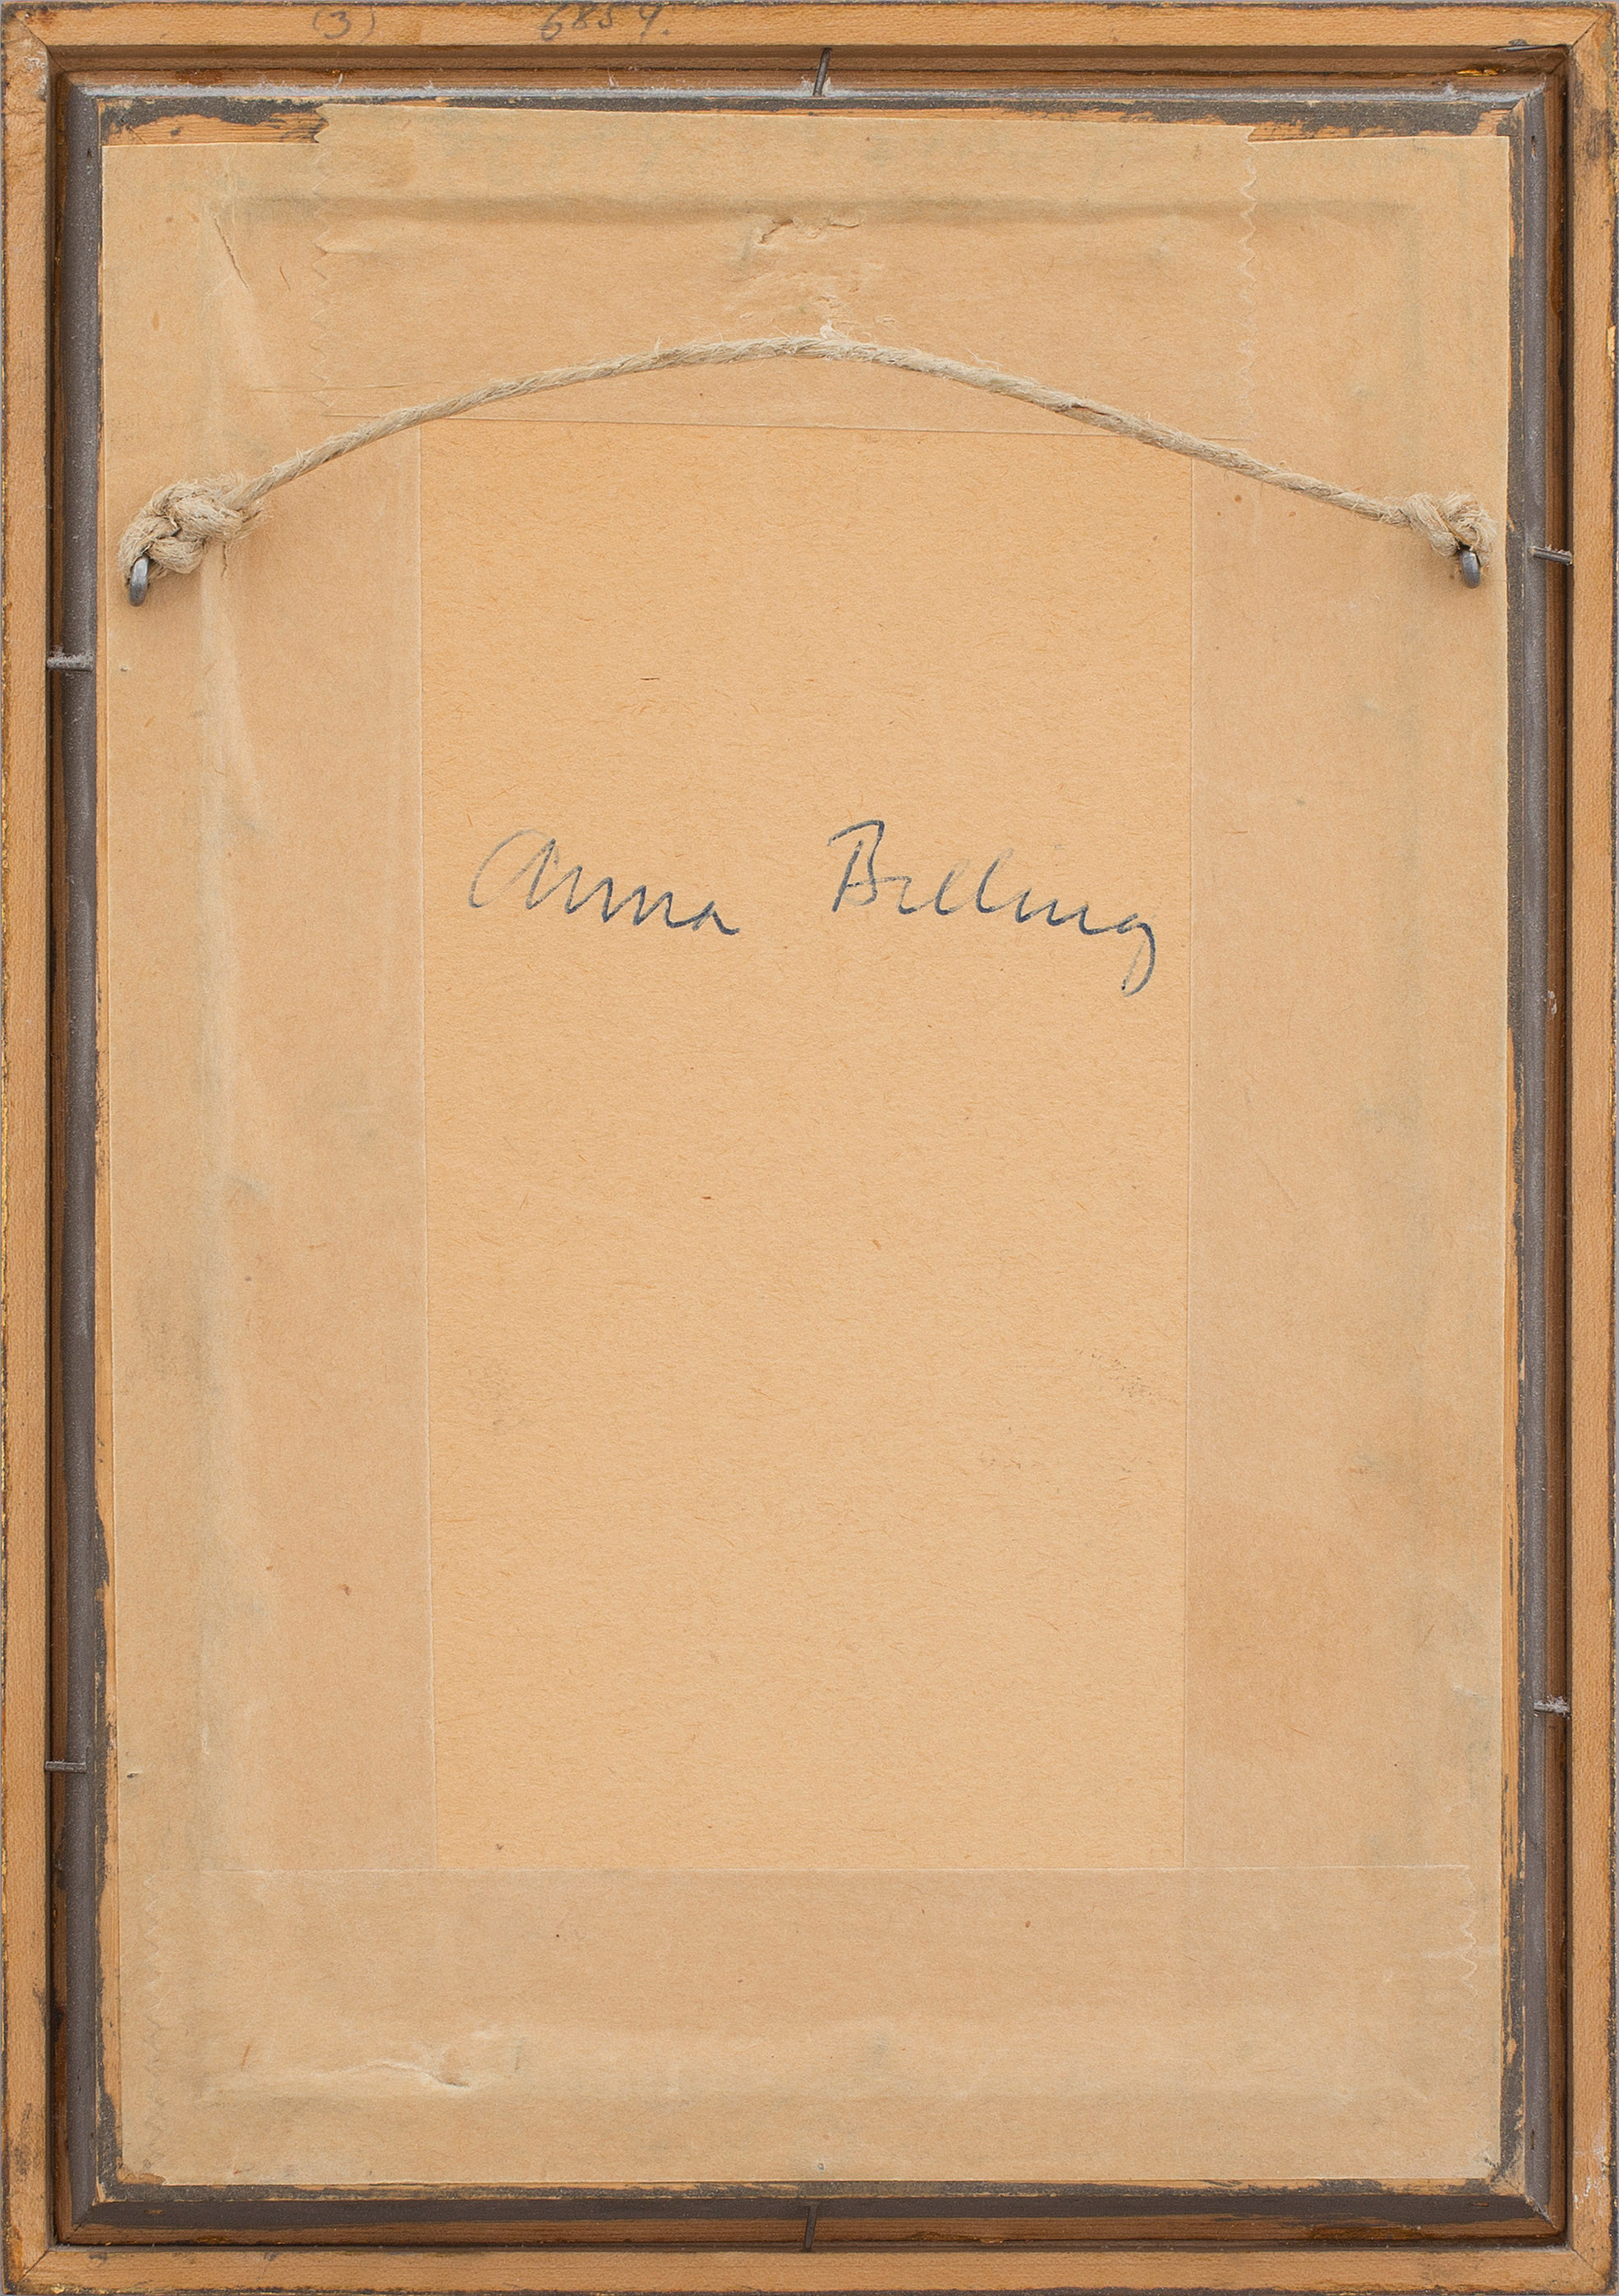 (3) 6854.
Anna Billing